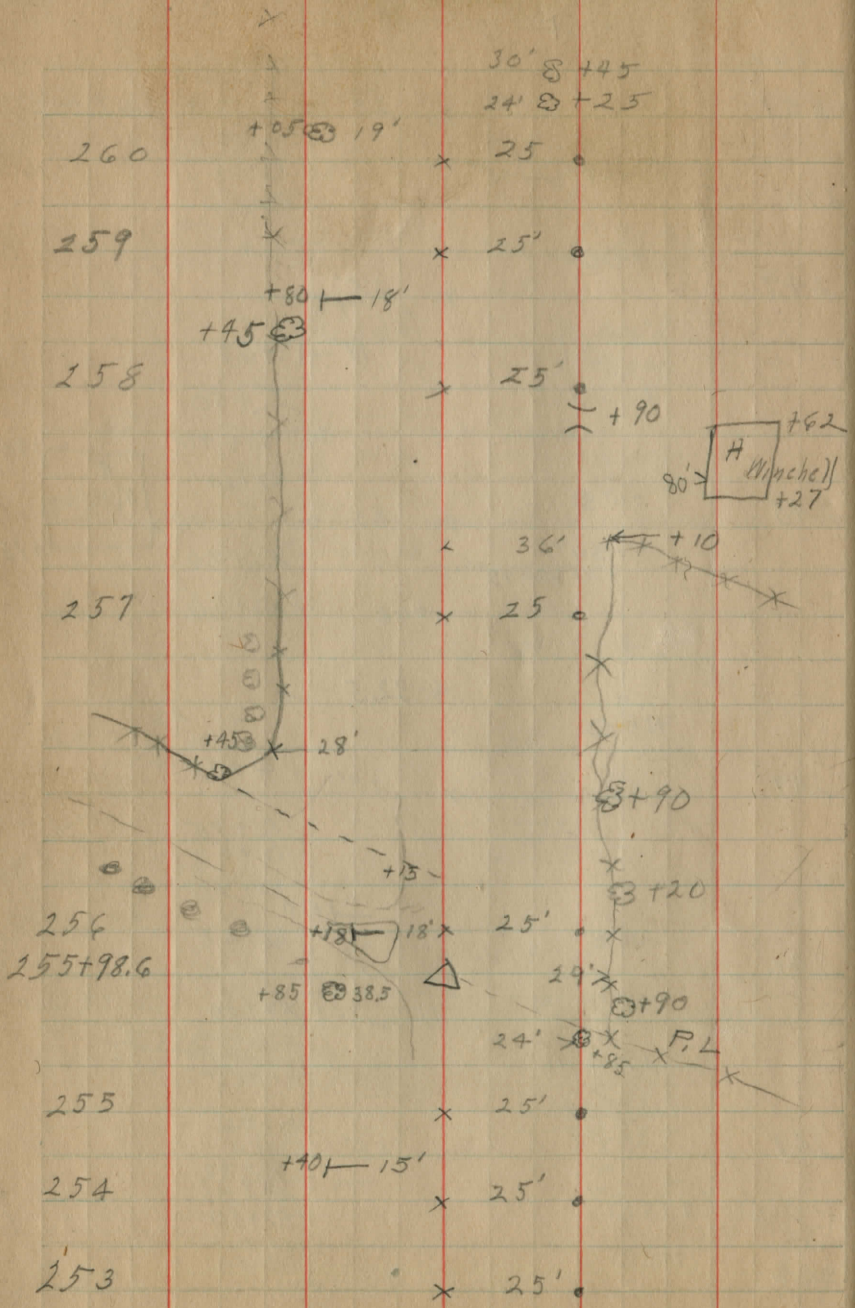 30' +45
24' +25
+05 19'
260 25
259 25'
+80 18'
+45
258 25'
+90
+62
H Winchell
80'
+27
36' +10
257 25
+45 28'
+90
+15
+20
256 +18 18' 25'
255+98.6 29'
+85 38.5 +90
24' +85 P.L
255 25'
+40 15'
254 25'
253 25'